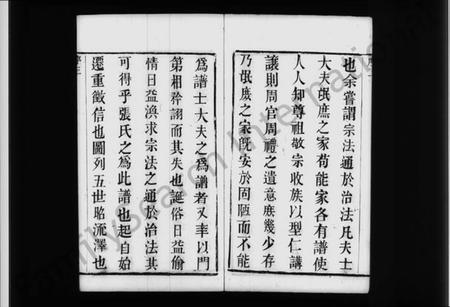 也余嘗謂宗法通於治法凡夫士
大夫氓庶之家苟能家各有譜使
人人知尊祖敬宗收族以型仁講
讓則周官周禮之遺意庶幾少存
乃氓庶之家既安於固陋而不能
為譜士大夫之為譜者又率以門
第相矜詡而其失也誕俗日益偷
情日益渙求宗法之通於治法其
可得乎張氏之為此譜也起自始
遷重徵信也圖列五世昭沠澤也